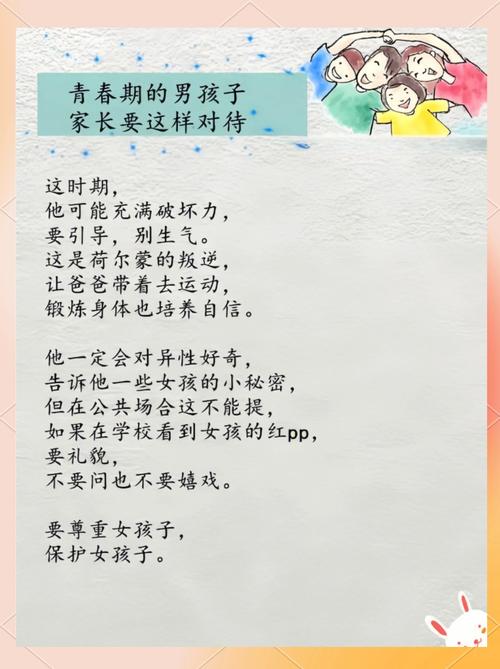 青春期的男孩子
家长要这样对待
这时期，
他可能充满破坏力，
要引导，别生气。
这是荷尔蒙的叛逆，
让爸爸带着去运动，
锻炼身体也培养自信。
他一定会对异性好奇，
告诉他一些女孩的小秘密，
但在公共场合这不能提，
如果在学校看到女孩的红pp，
要礼貌，
不要问也不要嬉戏。
要尊重女孩子，
保护女孩子。